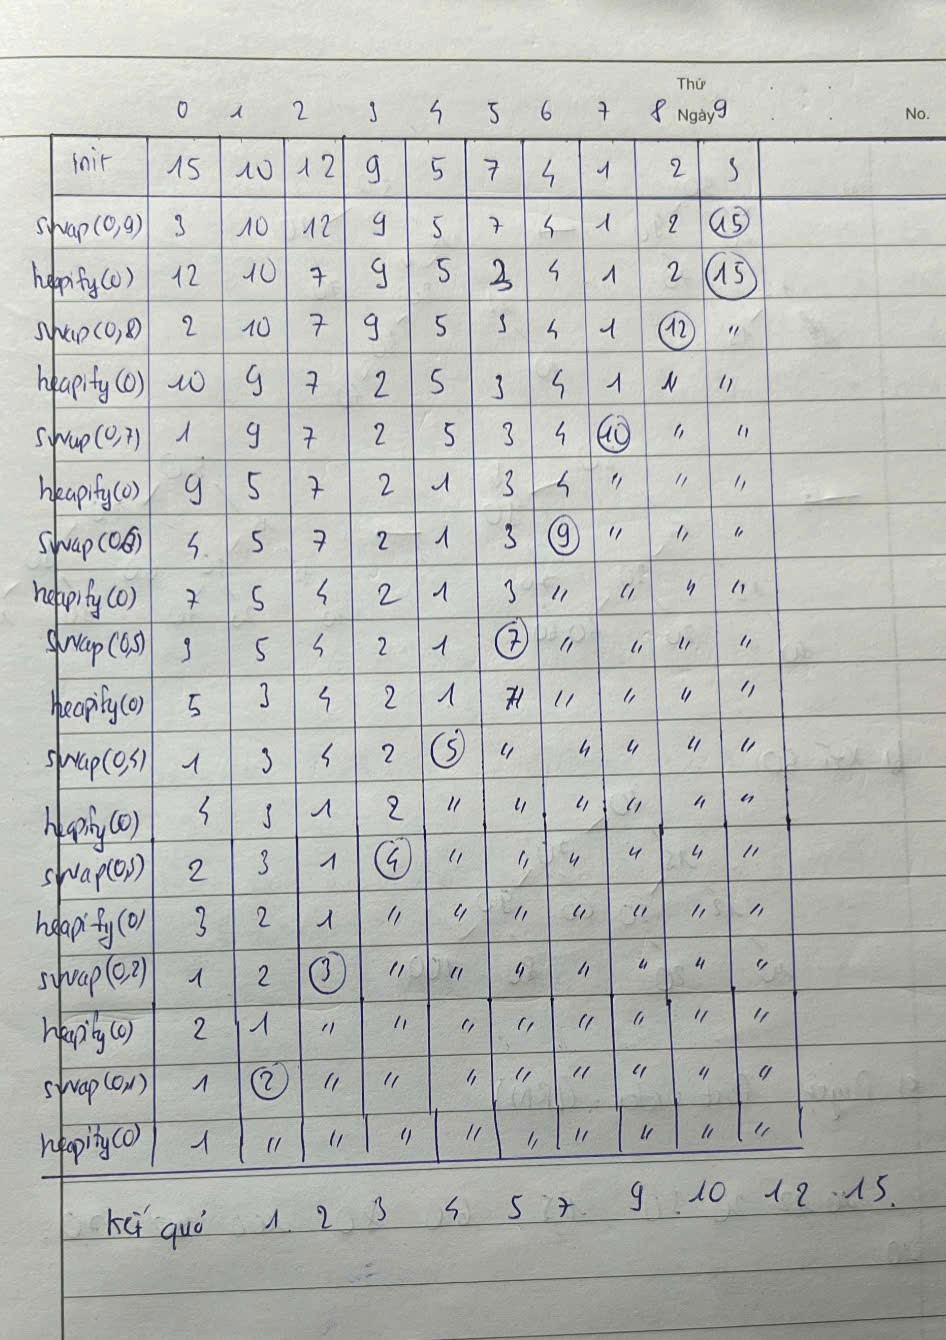 Thứ
0 1 2 3 4 5 6 7 8 Ngày 9 No.
Init 15 10 12 9 5 7 4 1 2 3
swap(0,9) 3 10 12 9 5 7 4 1 2 15
heapify(0) 12 10 7 9 5 3 4 1 2 15
swap(0,8) 2 10 7 9 5 3 4 1 12 "
heapify(0) 10 9 7 2 5 3 4 1 " "
swap(0,7) 1 9 7 2 5 3 4 10 " "
heapify(0) 9 5 7 2 1 3 4 " " "
swap(0,6) 4 5 7 2 1 3 9 " " "
heapify(0) 7 5 4 2 1 3 " " " "
swap(0,5) 3 5 4 2 1 7 " " " "
heapify(0) 5 3 4 2 1 " " " " "
swap(0,4) 1 3 4 2 5 " " " " "
heapify(0) 4 3 1 2 " " " " " "
swap(0,3) 2 3 1 4 " " " " " "
heapify(0) 3 2 1 " " " " " " "
swap(0,2) 1 2 3 " " " " " " "
heapify(0) 2 1 " " " " " " " "
swap(0,1) 1 2 " " " " " " " "
heapify(0) 1 " " " " " " " " "
Kết quả 1 2 3 4 5 7 9 10 12 15.